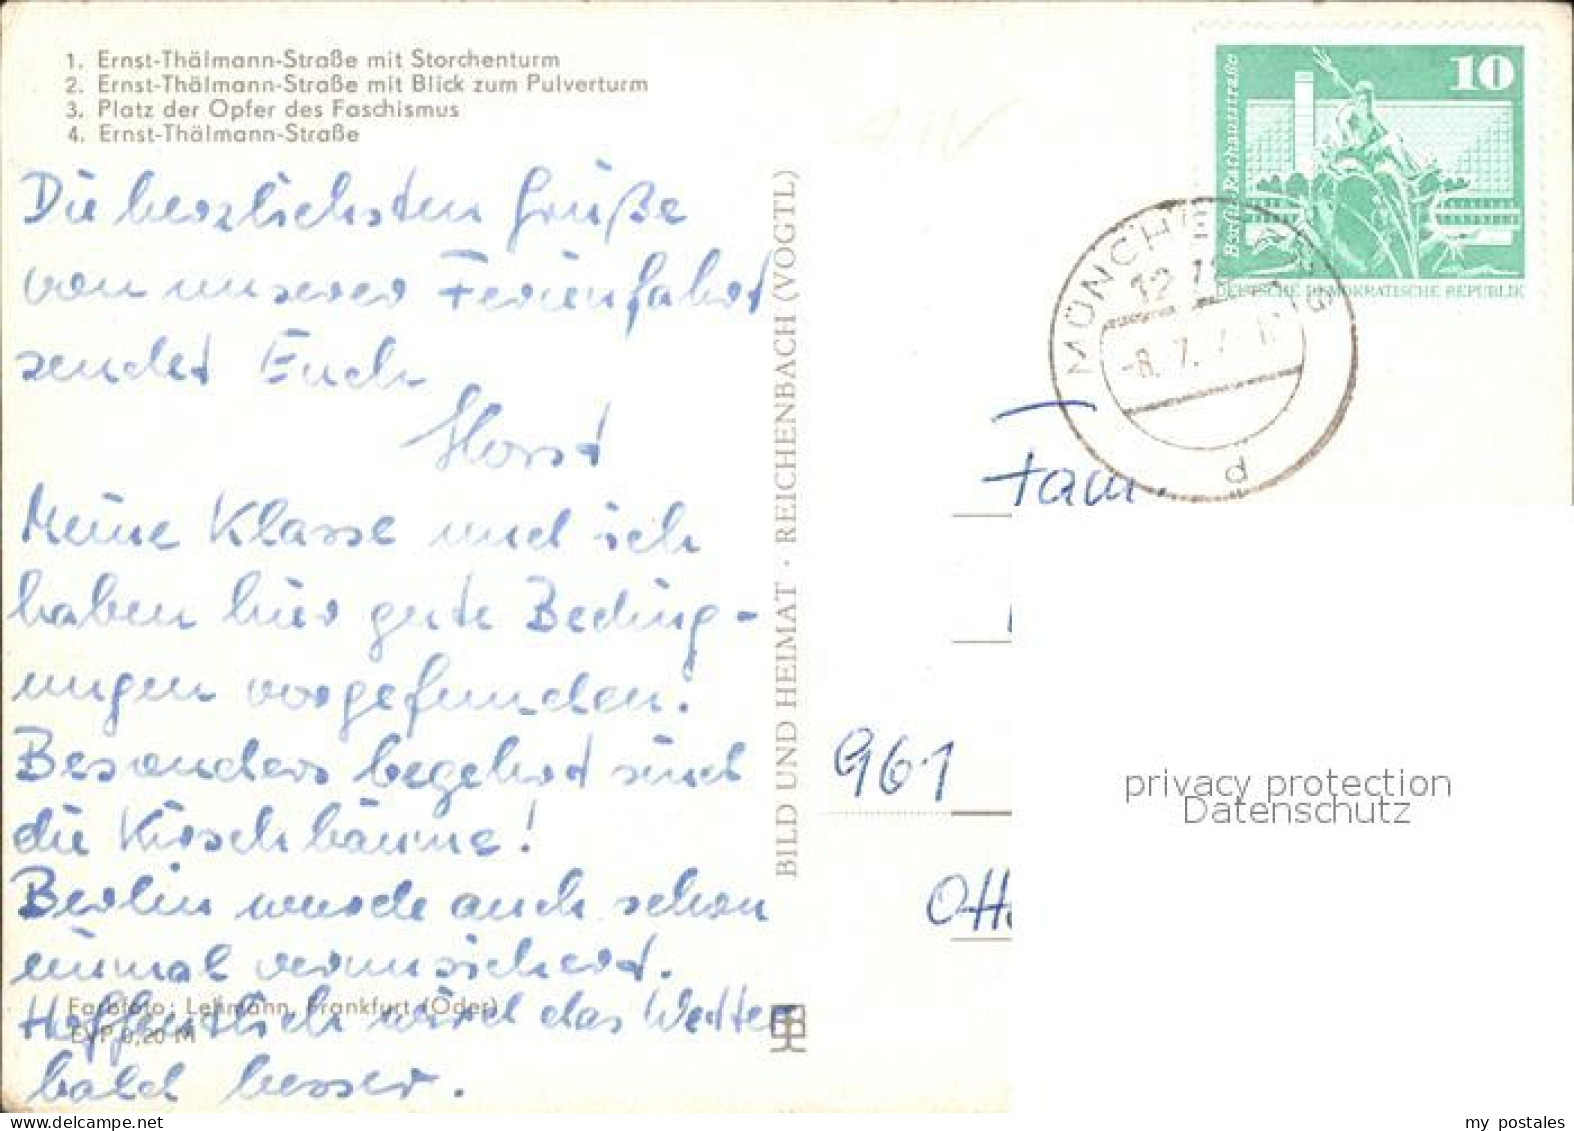 1. Ernst-Thälmann-Straße mit Storchenturm
2. Ernst-Thälmann-Straße mit Blick zum Pulverturm
3. Platz der Opfer des Faschismus
4. Ernst-Thälmann-Straße
Die herzlichsten Grüße
von unserer Ferienfahrt
sendet Euch
Horst
Meine Klasse und ich
haben hier gute Beding-
ungen vorgefunden.
Besonders begehrt sind
die Kirschbäume!
Berlin wurde auch schon
einmal verunsichert.
Hoffentlich wird das Wetter
bald besser.
Farbfoto: Lehmann, Frankfurt (Oder)
EVP 0,20 M
BILD UND HEIMAT · REICHENBACH (VOGTL)
10
Berlin, Rathausstraße
DEUTSCHE DEMOKRATISCHE REPUBLIK
MÜNCHEBERG
-8. 7.
d
Fam.
961
privacy protection
Datenschutz
my postales